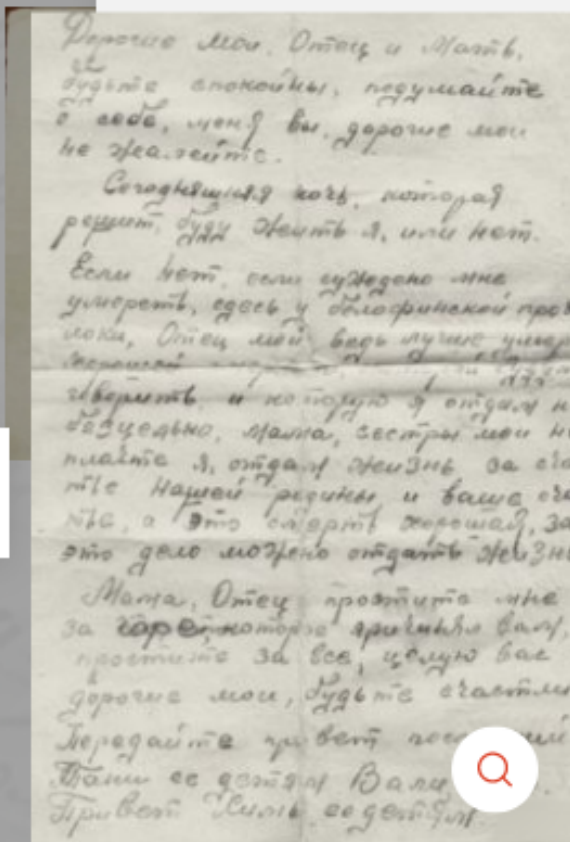 Дорогие мои. Отец и Мать,
будьте спокойны, подумайте
о себе, меня вы, дорогие мои
не жалейте.
Сегодняшняя ночь, которая
решит, буду жить я, или нет.
Если нет, если суждено мне
умереть, здесь у белофинской пров
локи, Отец мой ведь лучше умер
хорошей
говорить и которую я отдам н
безцельно, Мама, сестры мои н
плачте я, отдам жизнь за сча
тье нашей родины и ваше сча
тье, а это смерть хорошая, за
это дело можно отдать жизнь
Мама, Отец простите мне
за горе, которое причинял вам,
простите за все, целую вас
дорогие мои, будьте счастли
Передайте привет
Тани ее детям Вали
Привет ее детям.